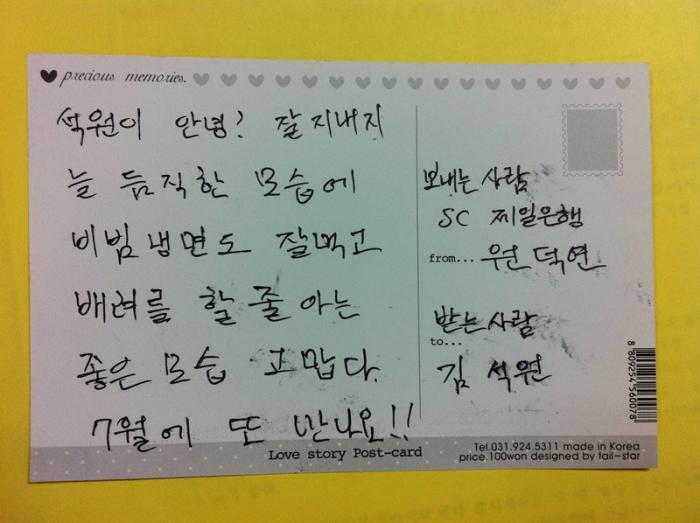 precious memories.
석원이 안녕? 잘지내지
늘 듬직한 모습에
비빔냉면도 잘먹고
배려를 할 줄 아는
좋은 모습 고맙다.
7월에 또 만나요!!
보내는 사람
SC 제일은행
from... 원덕연
받는사람
to...
김석원
8 809254 560078
Love story Post-card
Tel.031.924.5311 made in Korea
price.100won designed by tail-star